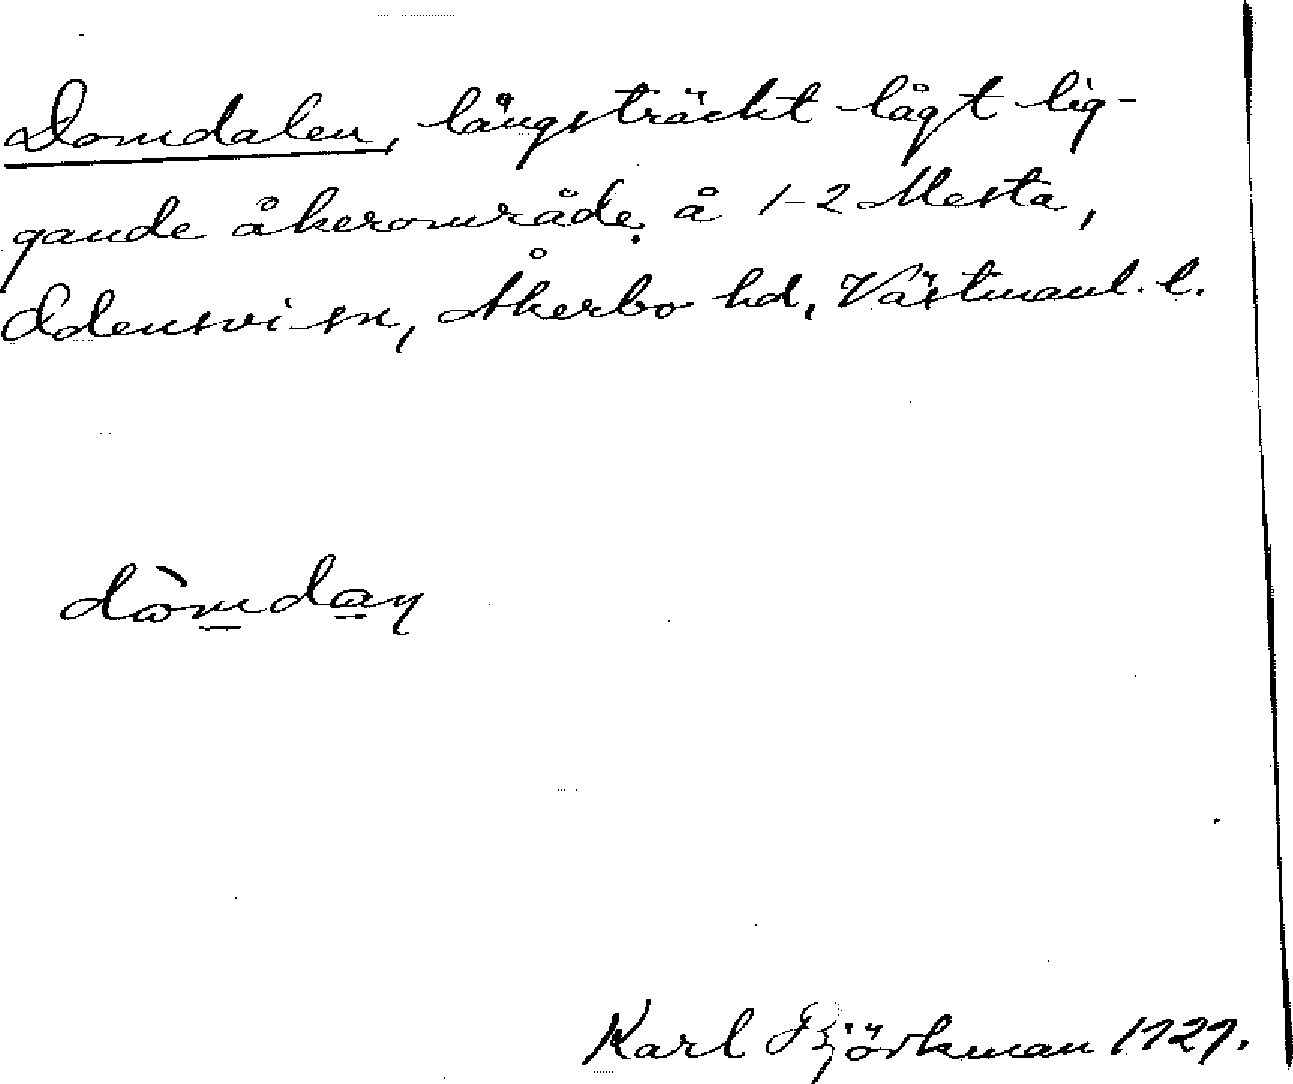 Domdalen, långsträckt lågt lig-
gande åkerområde å 1-2 Mesta,
Odensvi sn, Åkerbo hd, Västmanl. l.
dòmdaṇ
Karl Björkman 1929.